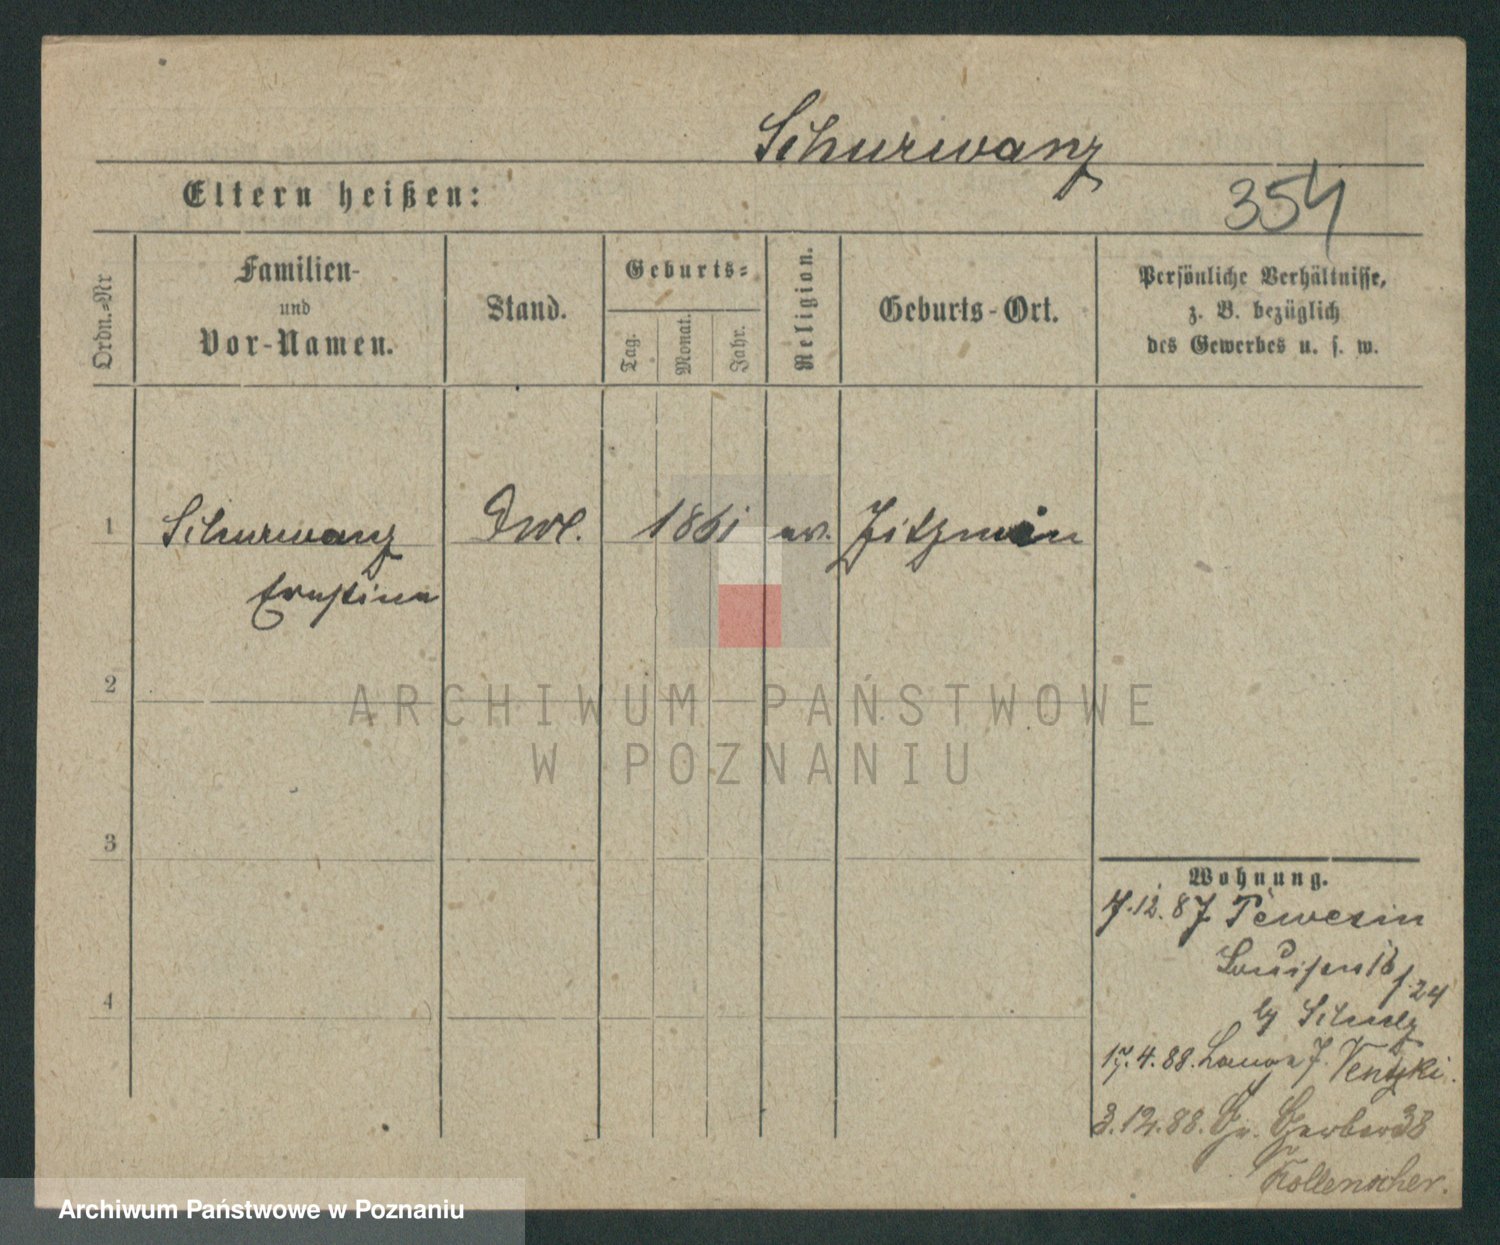 Schurwanz
Eltern heißen:
354
Ordn.=Nr
Familien-
und
Vor-Namen.
Stand.
Geburts=
Tag.
Monat.
Jahr.
Religion.
Geburts-Ort.
Persönliche Verhältnisse,
z. B. bezüglich
des Gewerbes u. s. w.
1
Schurwanz
Ernstine
1861
ev.
2
ARCHIWUM PAŃSTWOWE
W POZNANIU
3
Wohnung.
12. 87 Pewesin
Louisen 16
24
Schulz
4
17.4.88. Lange 7. Ventzki.
3.12.88. Gr. Gerber 38
Kollenscher.
Archiwum Państwowe w Poznaniu